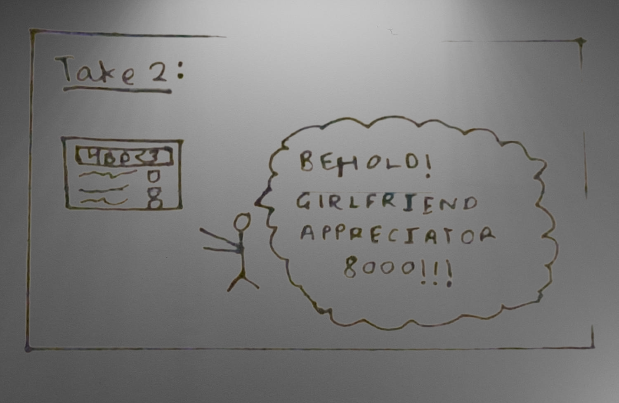 Take 2:
HBD<3
BEHOLD!
GIRLFRIEND
APPRECIATOR
8000!!!